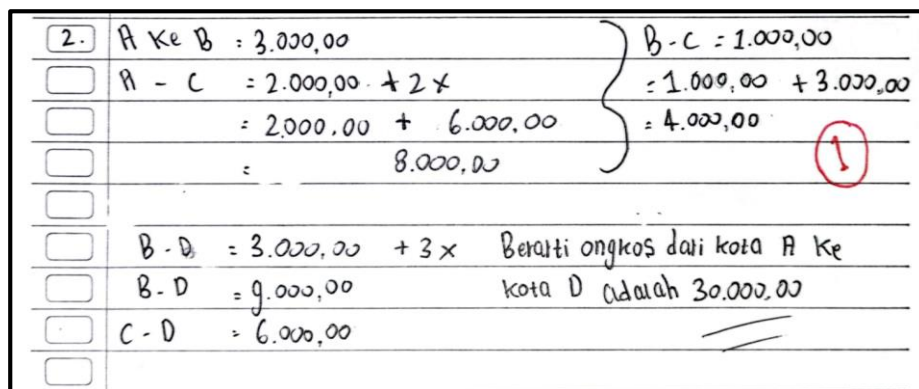 2. A Ke B : 3.000,00
A - C = 2.000,00 + 2x
: 2000.00 + 6.000,00
: 8.000,00
B - C = 1.000,00
= 1.000,00 + 3.000,00
= 4.000,00
1
B - D = 3.000,00 + 3x
B - D = 9.000,00
C - D = 6.000,00
Berarti ongkos dari kota A Ke
kota D adalah 30.000,00